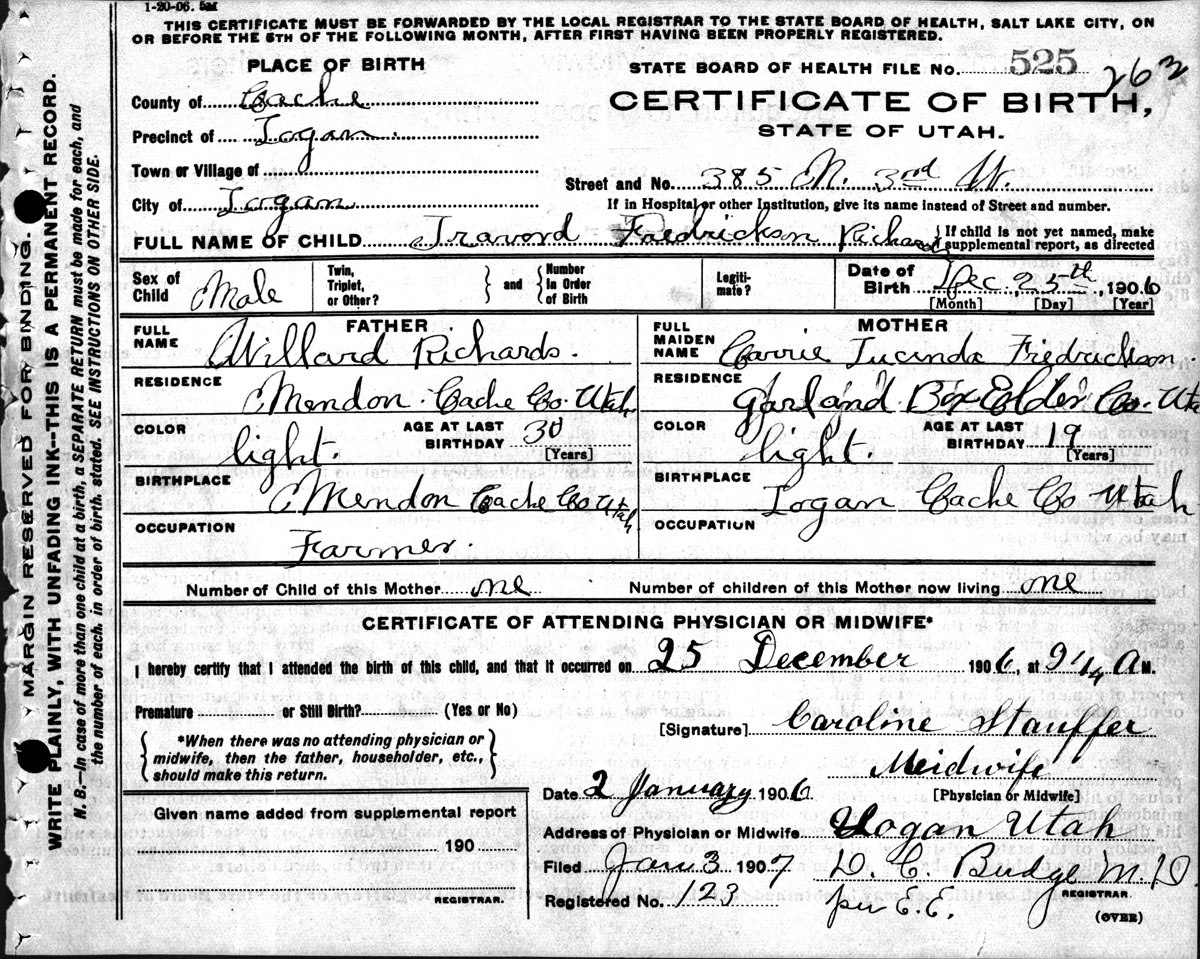 1-20-06. 5M
THIS CERTIFICATE MUST BE FORWARDED BY THE LOCAL REGISTRAR TO THE STATE BOARD OF HEALTH, SALT LAKE CITY, ON
OR BEFORE THE 5TH OF THE FOLLOWING MONTH, AFTER FIRST HAVING BEEN PROPERLY REGISTERED.
MARGIN RESERVED FOR BINDING.
WRITE PLAINLY, WITH UNFADING INK--THIS IS A PERMANENT RECORD.
N. B.—In case of more than one child at a birth, a SEPARATE RETURN must be made for each, and
the number of each, in order of birth, stated. SEE INSTRUCTIONS ON OTHER SIDE.
PLACE OF BIRTH
STATE BOARD OF HEALTH FILE NO. 525
263
County of Cache
CERTIFICATE OF BIRTH,
Precinct of Logan.
STATE OF UTAH.
Town or Village of
Street and No. 385 N. 3rd W.
City of Logan
If in Hospital or other Institution, give its name instead of Street and number.
FULL NAME OF CHILD Travord Fredrickson Richards
If child is not yet named, make
supplemental report, as directed
Sex of Child Male
Twin, Triplet, or Other?
and
Number In Order of Birth
Legitimate?
Date of Birth Dec. 25th, 1906
[Month] [Day] [Year]
FATHER
FULL NAME Willard Richards.
RESIDENCE
Mendon. Cache Co. Utah
COLOR light.
AGE AT LAST BIRTHDAY 30
[Years]
BIRTHPLACE
Mendon Cache Co Utah
OCCUPATION
Farmer.
MOTHER
FULL MAIDEN NAME Carrie Lucinda Fredrickson.
RESIDENCE
Garland Box Elder Co. Utah
COLOR light.
AGE AT LAST BIRTHDAY 19
[Years]
BIRTHPLACE
Logan Cache Co Utah
OCCUPATION
Number of Child of this Mother one
Number of children of this Mother now living one
CERTIFICATE OF ATTENDING PHYSICIAN OR MIDWIFE*
I hereby certify that I attended the birth of this child, and that it occurred on 25 December 1906, at 9 1/4 A M.
Premature or Still Birth? (Yes or No)
[Signature] Caroline Stauffer
*When there was no attending physician or
midwife, then the father, householder, etc.,
should make this return.
Meidwife
[Physician or Midwife]
Date 2 January 1906
Given name added from supplemental report
190
REGISTRAR.
Address of Physician or Midwife Logan Utah
Filed Jan 3 1907 D. C. Budge M.D.
REGISTRAR
Registered No. 123 per E.E.
(OVER)